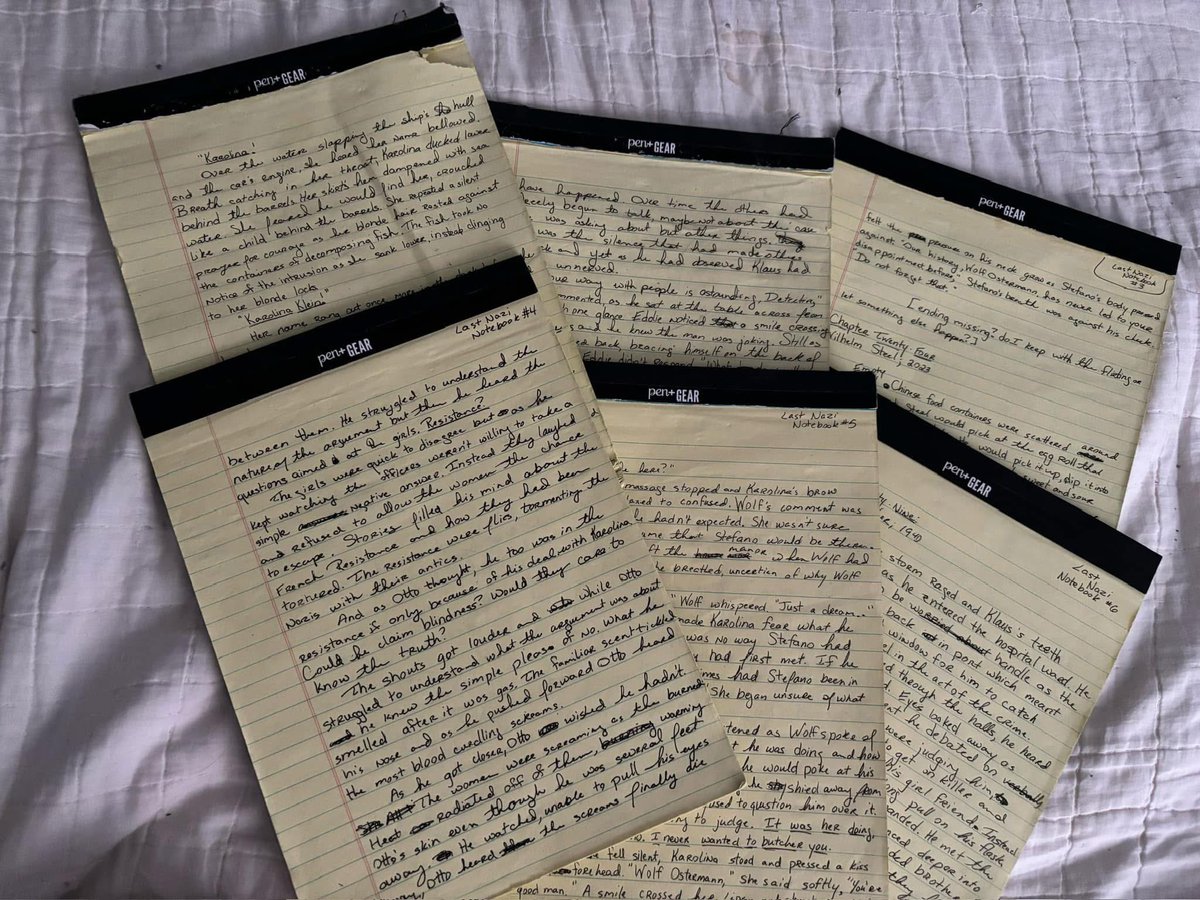 pen+GEAR
"Karolina!
Over the water slapping the ship's hull
and the car's engine, she heard her name bellowed.
Breath catching in her throat, Karolina ducked lower
behind the barrels. Her skirt's hem dampened with sea
water. She feared he would find her, crouched
Like a child behind the barrels. She repeated a silent
prayer for courage as her blonde hair rested against
the containers of decomposing fish. The fish took no
Notice of the intrusion as she sank lower, instead clinging
to her blonde locks.
"Karolina Klein!"
Her name rang out once more
pen+GEAR
have happened. Over time the others had
begun to talk maybe not about the case
was asking about but other things.
was the silence that had made others
and yet as he had observed Klaus had
unnerved.
our way with people is astounding, Detective,"
mmented, as he sat at the table across from
one glance Eddie noticed a smile crossing
and he knew the man was joking. Still as
back, bracing himself on the back of
Eddie didn't respond.
pen+GEAR
Last Nazi
Notebook
#3
felt the pressure on his neck grow as Stefano's body pressed
against "Our history, Wolf Ostermann has never led to your
disappointment before," Stefano's breath was against his cheek.
Do not forget that."
[ending missing? do I keep with the flirting or
let something else happen?]
Chapter Twenty Four
Wilhelm Steel, 2023
Empty Chinese food containers were scattered around
Steel would pick at the egg roll that
would pick it up, dip it into
sweet and sour
pen+GEAR
Last Nazi
Notebook #4
between them. He struggled to understand the
nature of the argument but then he heard the
questions aimed at the girls. Resistance?
The girls were quick to disagree but as he
kept watching the officers weren't willing to take a
simple negative answer. Instead they laughed
and refused to allow the women the chance
to escape. Stories filled his mind about the
French Resistance and how they had been
tortured. The Resistance were flies, tormenting the
Nazis with their antics.
And as Otto thought, he too was in the
resistance if only because of his deal with Karolina
Could he claim blindness? Would they care to
know the truth?
The shouts got louder and while Otto
struggled to understand what the argument was about
he knew the simple pleas of No. what he
smelled after it was gas. The familiar scent tickled
his nose and as he pushed forward Otto heard
the most blood curdling screams.
As he got closer, Otto wished he hadn't.
The women were screaming as the burned
Heat radiated off of them, warming
Otto's skin even though he was several feet
away. He watched, unable to pull his eyes
Otto heard the screams finally die
away.
pen+GEAR
Last Nazi
Notebook #5
here?"
massage stopped and Karolina's brow
to confused. Wolf's comment was
he hadn't expected. She wasn't sure
ame that Stefano would be there.
the manor when Wolf had
he breathed, uncertian of why Wolf
" Wolf whispered. "Just a dream..."
made Karolina fear what he
was no way Stefano had
had first met. If he
times had Stefano been in
She began unsure of what
tened as Wolf spoke of
he was doing and how
he would poke at his
he shied away from
used to qustion him over it.
to judge. It was her doing
I never wanted to butcher you.
fell silent, Karolina stood and pressed a kiss
forehead. "Wolf Ostermann," she said softly, "You're
good man." A smile crossed her
pen+GEAR
Last Nazi
Notebook #6
Nine:
1940
storm raged and Klaus's teeth
as he entered the hospital ward. He
be handle as the
back in point which meant
window for him to catch
in the act of the crime.
through the halls, he heard
Eyes looked away as
he debated on verbally
were judging him,
to get un killer and
His girl friend. Instead
pull on his flask
handed. He met the
deeper into
brother
they